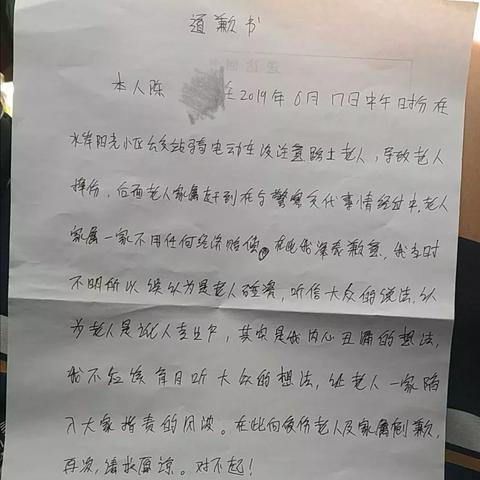 道歉书
本人陈 在2019年6月17日中午时分在
水岸阳光小区公交站骑电动车没注意路上老人,导致老人
摔伤,后面老人家属赶到在与警察交代事情经过中,老人
家属一家不用任何经济赔偿。在此我深表歉意,我当时
不明所以误认为是老人碰瓷,听信大众的说法,认
为老人是讹人专业户,其实是我内心丑陋的想法,
我不应该盲目听大众的想法,让老人一家陷
入大家指责的风波。在此向受伤老人及家属道歉,
再次,请求原谅。对不起!